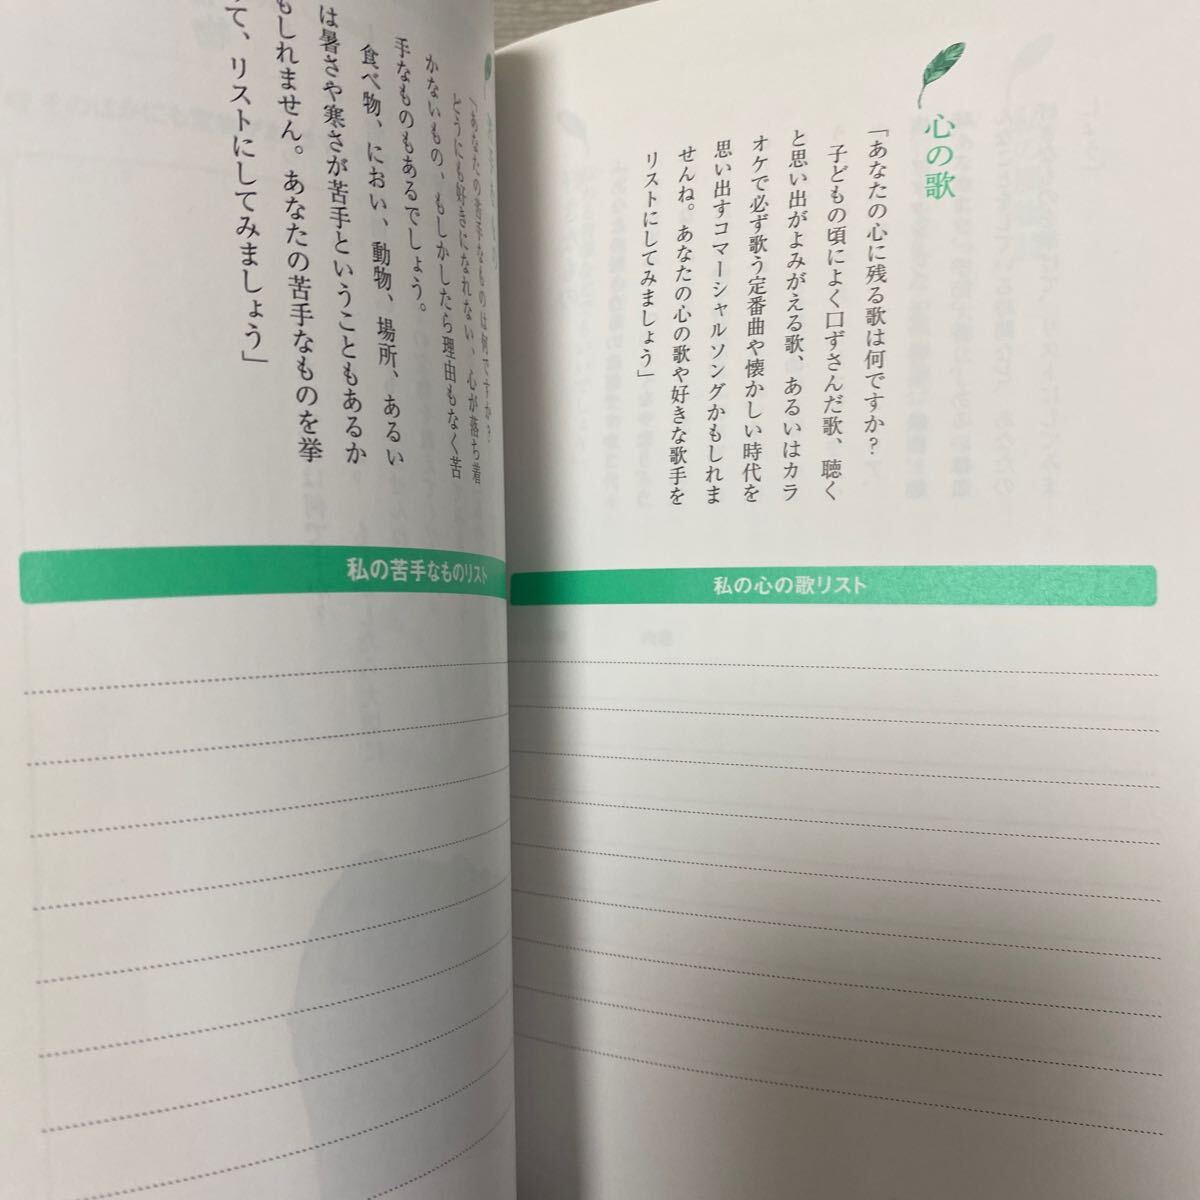 心の歌
「あなたの心に残る歌は何ですか？
子どもの頃によく口ずさんだ歌、聴く
と思い出がよみがえる歌、あるいはカラ
オケで必ず歌う定番曲や懐かしい時代を
思い出すコマーシャルソングかもしれま
せんね。あなたの心の歌や好きな歌手を
リストにしてみましょう」
私の心の歌リスト
「あなたの苦手なものは何ですか？
どうにも好きになれない、心が落ち着
かないもの、もしかしたら理由もなく苦
手なものもあるでしょう。
食べ物、におい、動物、場所、あるい
は暑さや寒さが苦手ということもあるか
もしれません。あなたの苦手なものを挙
て、リストにしてみましょう」
私の苦手なものリスト